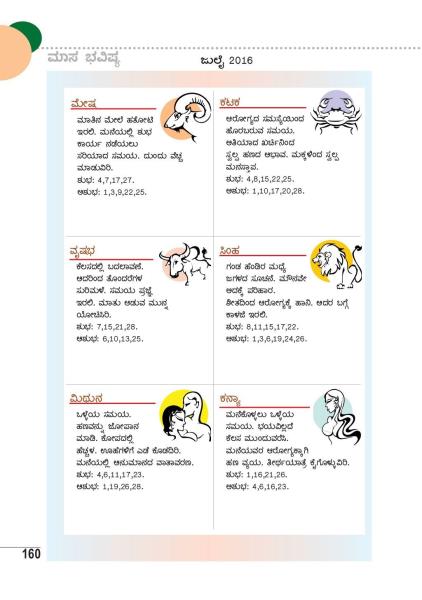 ಮಾಸ ಭವಿಷ್ಯ
ಜುಲೈ 2016
ಮೇಷ
ಮಾತಿನ ಮೇಲೆ ಹತೋಟಿ
ಇರಲಿ. ಮನೆಯಲ್ಲಿ ಶುಭ
ಕಾರ್ಯ ನಡೆಯಲು
ಸರಿಯಾದ ಸಮಯ. ದುಂದು ವೆಚ್ಚ
ಮಾಡುವಿರಿ.
ಶುಭ: 4,7,17,27.
ಅಶುಭ: 1,3,9,22,25.
ಕಟಕ
ಆರೋಗ್ಯದ ಸಮಸ್ಯೆಯಿಂದ
ಹೊರಬರುವ ಸಮಯ.
ಅತಿಯಾದ ಖರ್ಚಿನಿಂದ
ಸ್ವಲ್ಪ ಹಣದ ಅಭಾವ. ಮಕ್ಕಳಿಂದ ಸ್ವಲ್ಪ
ಮನಸ್ತಾಪ.
ಶುಭ: 4,8,15,22,25.
ಅಶುಭ: 1,10,17,20,28.
ವೃಷಭ
ಕೆಲಸದಲ್ಲಿ ಬದಲಾವಣೆ.
ಆದರಿಂದ ತೊಂದರೆಗಳ
ಸುರಿಮಳೆ. ಸಮಯ ಪ್ರಜ್ಞೆ
ಇರಲಿ. ಮಾತು ಆಡುವ ಮುನ್ನ
ಯೋಚಿಸಿರಿ.
ಶುಭ: 7,15,21,28.
ಅಶುಭ: 6,10,13,25.
ಸಿಂಹ
ಗಂಡ ಹೆಂಡಿರ ಮಧ್ಯೆ
ಜಗಳದ ಸೂಚನೆ. ಮೌನವೇ
ಅದಕ್ಕೆ ಪರಿಹಾರ.
ಶೀತದಿಂದ ಆರೋಗ್ಯಕ್ಕೆ ಹಾನಿ. ಆದರ ಬಗ್ಗೆ
ಕಾಳಜಿ ಇರಲಿ.
ಶುಭ: 8,11,15,17,22.
ಅಶುಭ: 1,3,6,19,24,26.
ಮಿಥುನ
ಒಳ್ಳೆಯ ಸಮಯ.
ಹಣವನ್ನು ಜೋಪಾನ
ಮಾಡಿ. ಕೋಪದಲ್ಲಿ
ಹೆಚ್ಚಳ. ಊಹೆಗಳಿಗೆ ಎಡೆ ಕೊಡದಿರಿ.
ಮನೆಯಲ್ಲಿ ಅನುಮಾನದ ವಾತಾವರಣ.
ಶುಭ: 4,6,11,17,23.
ಅಶುಭ: 1,19,26,28.
ಕನ್ಯಾ
ಮನೆಕೊಳ್ಳಲು ಒಳ್ಳೆಯ
ಸಮಯ. ಭಯವಿಲ್ಲದೆ
ಕೆಲಸ ಮುಂದುವರೆಸಿ.
ಮನೆಯವರ ಆರೋಗ್ಯಕ್ಕಾಗಿ
ಹಣ ವ್ಯಯ. ತೀರ್ಥಯಾತ್ರೆ ಕೈಗೊಳ್ಳುವಿರಿ.
ಶುಭ: 1,16,21,26.
ಅಶುಭ: 4,6,16,23.
160